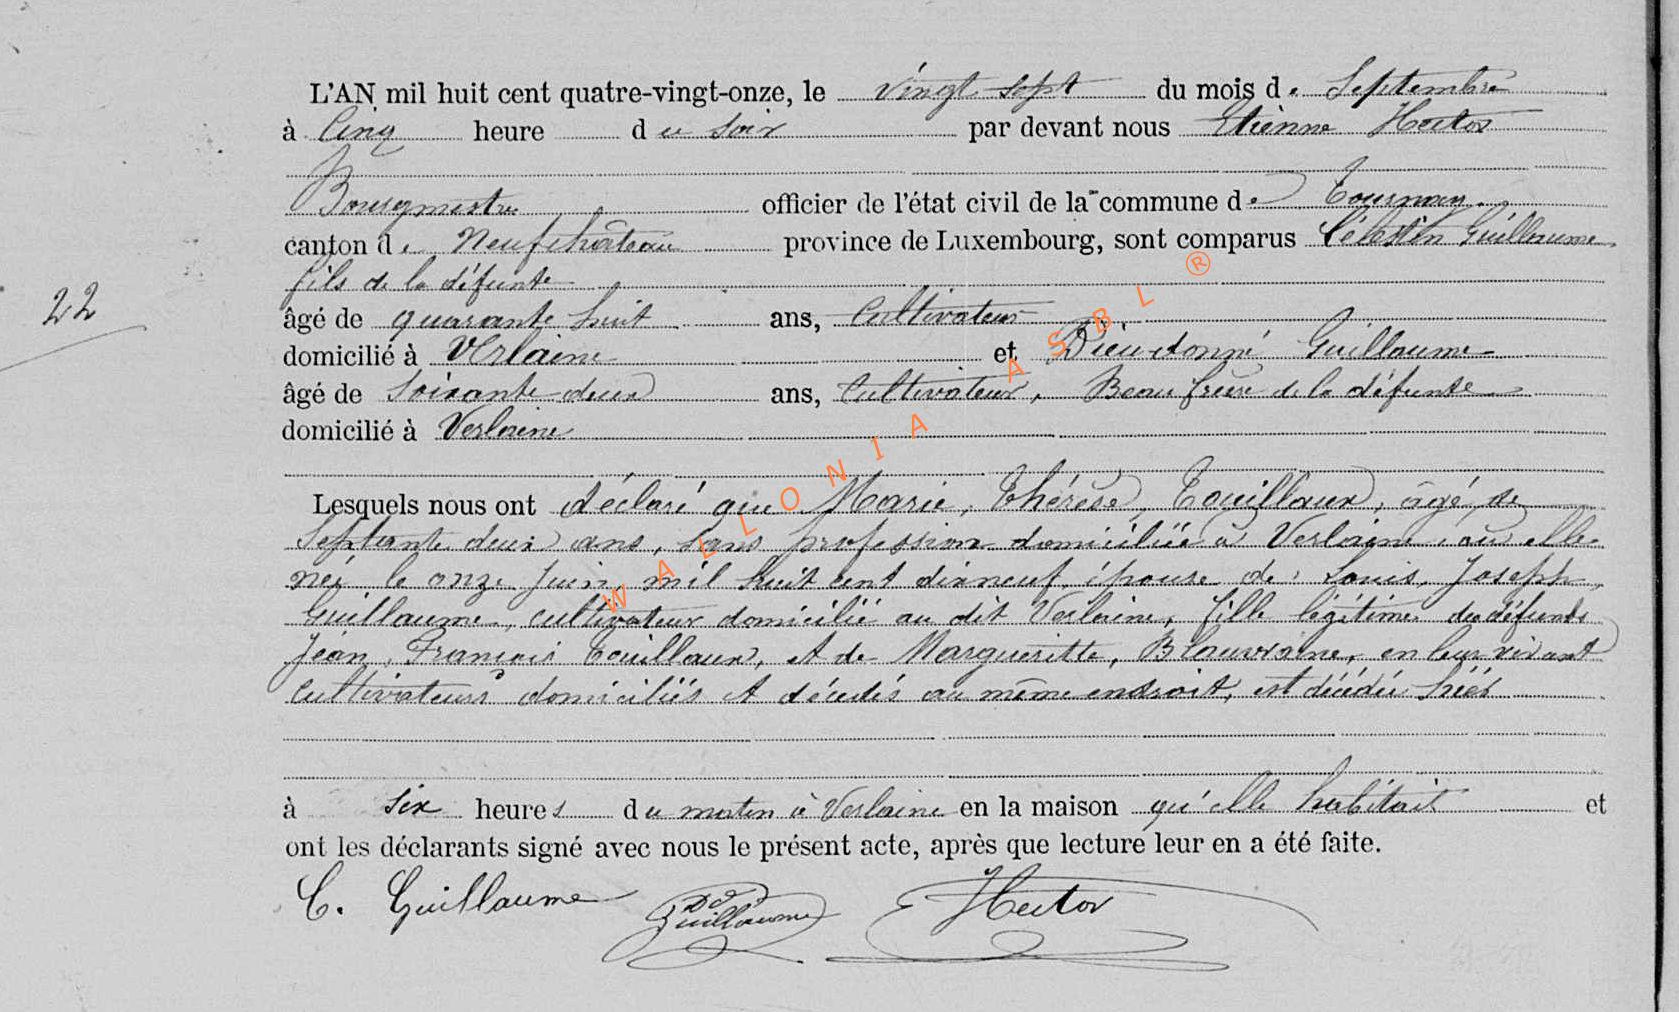 L'AN mil huit cent quatre-vingt-onze, le vingt sept du mois de Septembre
à Cinq heure du soir par devant nous Etiènne Hector
Bourgmestre officier de l'état civil de la commune de Tournay.
canton de Neufchâteau province de Luxembourg, sont comparus Célestin Guillaume
fils de la défunte
22
âgé de quarante huit ans, Cultivateur
domicilié à Verlaine et Dieudonné Guillaume
âgé de soixante deux ans, Cultivateur, Beau frère de la défunte
domicilié à Verlaine
Lesquels nous ont déclaré que Marie, Thérèse, Touillaux, âgé de
Septante deux ans, sans profession domiciliée à Verlaine où elle
née le onze Juin mil huit cent dixneuf, épouse de Louis, Joseph,
Guillaume, cultivateur domicilié au dit Verlaine, fille légitime des défunts
Jean, François Touillaux, et de Margueritte, en leur vivant
cultivateurs domiciliés et décédés au même endroit, est décédée hiér
à six heures du matin à Verlaine en la maison qu'elle habitait et
ont les déclarants signé avec nous le présent acte, après que lecture leur en a été faite.
C. Guillaume Dé Guillaume Hector
WALLONIA ASBL ®